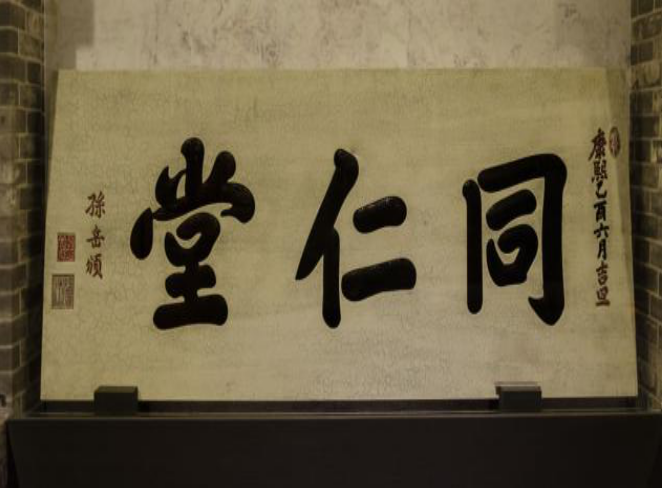 康熙乙酉六月吉旦
同仁堂
孫岳頒